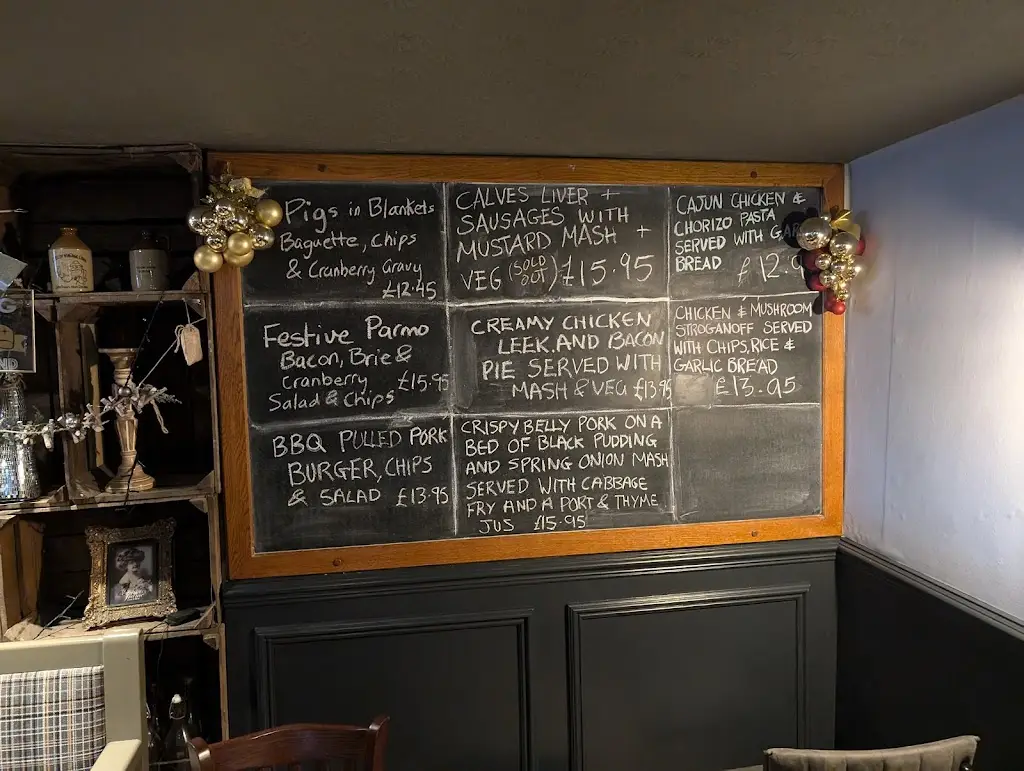 Pigs in Blankets
Baguette, Chips
& Cranberry Gravy
£12.45
CALVES LIVER +
SAUSAGES WITH
MUSTARD MASH +
VEG (SOLD OUT) £15.95
CAJUN CHICKEN &
CHORIZO PASTA
SERVED WITH
BREAD
Festive Parmo
Bacon, Brie &
Cranberry £15.95
Salad & Chips
CREAMY CHICKEN
LEEK AND BACON
PIE SERVED WITH
MASH & VEG £13.95
CHICKEN & MUSHROOM
STROGANOFF SERVED
WITH CHIPS, RICE &
GARLIC BREAD
£13.95
BBQ PULLED PORK
BURGER, CHIPS
& SALAD £13.95
CRISPY BELLY PORK ON A
BED OF BLACK PUDDING
AND SPRING ONION MASH
SERVED WITH CABBAGE
FRY AND A PORT & THYME
JUS £15.95